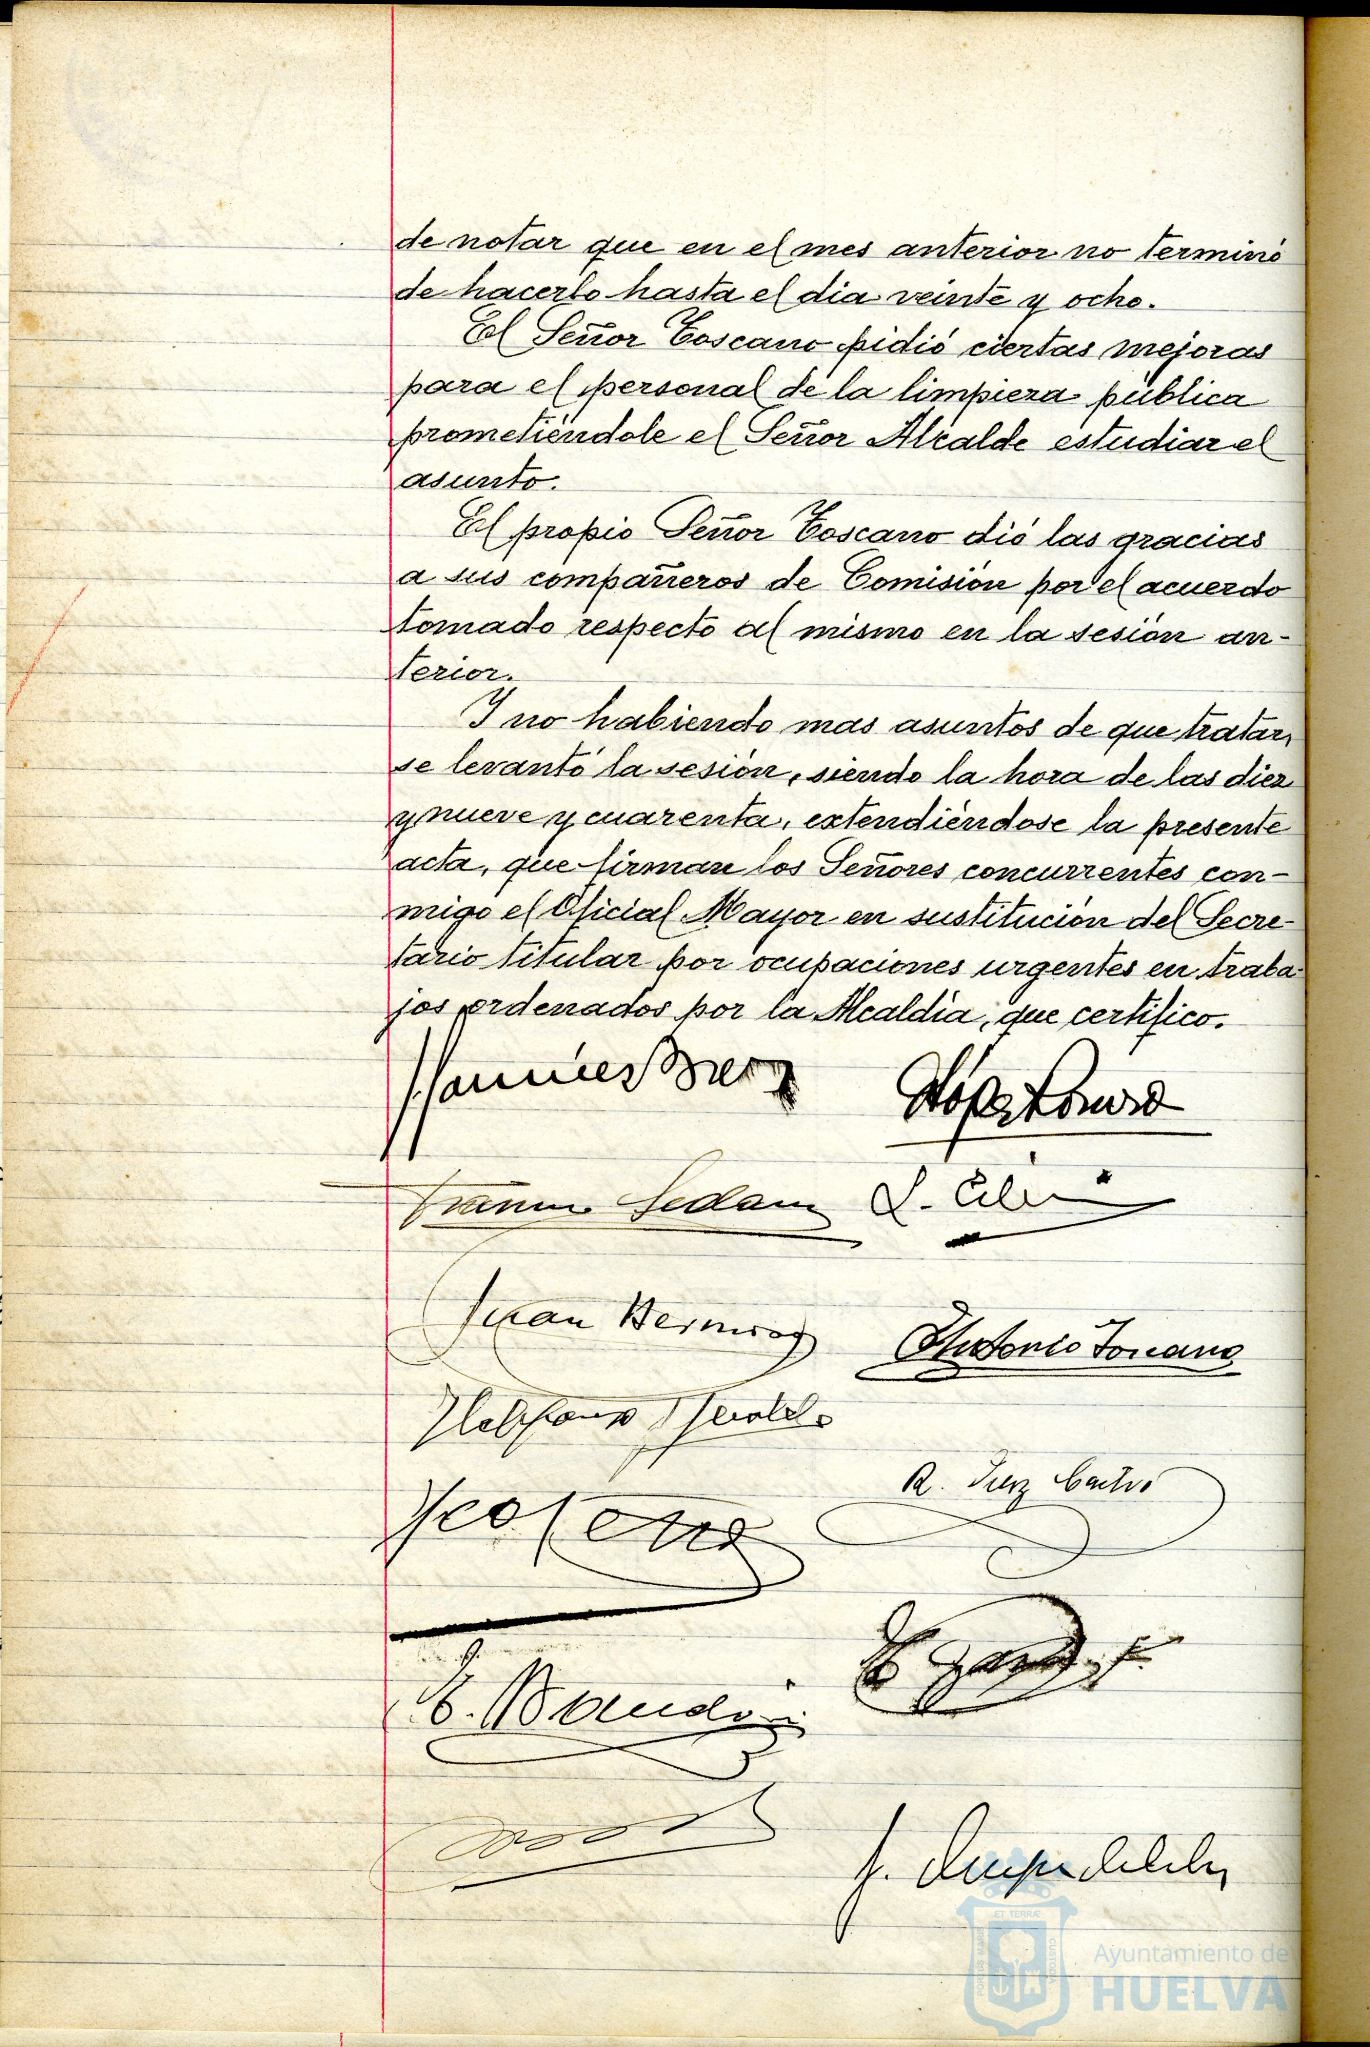 de notar que en el mes anterior no terminó
de hacerlo hasta el dia veinte y ocho.
El Señor Toscano pidió ciertas mejoras
para el personal de la limpieza pública
prometiéndole el Señor Alcalde estudiar el
asunto.
El propio Señor Toscano dió las gracias
a sus compañeros de Comisión por el acuerdo
tomado respecto al mismo en la sesión an-
terior.
Y no habiendo mas asuntos de que tratar,
se levantó la sesión, siendo la hora de las diez
y nueve y cuarenta, extendiéndose la presente
acta, que firman los Señores concurrentes con-
migo el Oficial Mayor en sustitución del Secre-
tario titular por ocupaciones urgentes en traba-
jos ordenados por la Alcaldía, que certifico.
Juan
Antonio Toscano
R.
ET TERRÆ
PORTUS MARIS
CUSTODIA
Ayuntamiento de
HUELVA